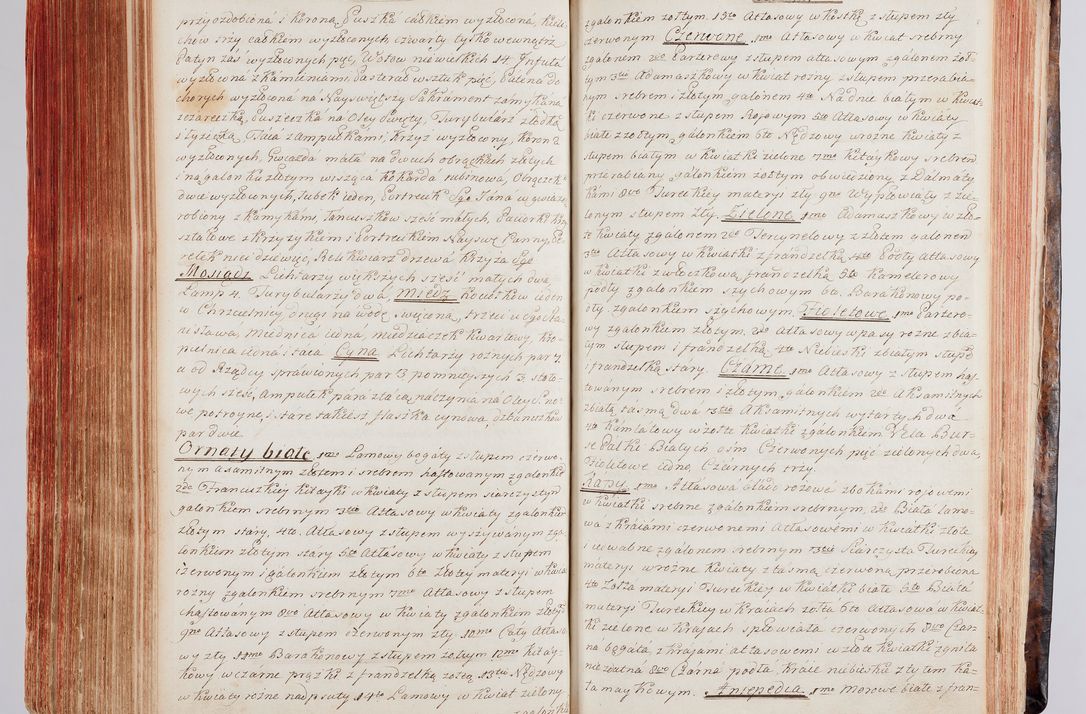 przyozdobioná i koroną. Puszká całkiem wyzłocona, kieli-
chow trzy całkiem wyzłoconych, czwarty tylko wewnątrz
Patyn záś wyzłoconych pięć, Wotow niewielkich 14. Infułá
wyzłocona z kamieniami, Pasterał w sztuk pięć, Patena do
chorych wyzłocona ná Nayswiętszy Sakrament zamykáná
czareczką, Puszeczka na Oley Swięty, Turybularz z łodką
i łyżeczką, Taca z ampułkámi, Krzyż wyzłocony, koron 2
wyzłoconych, Gwiazda mała na dwuch obrączkách złotych
i ná galonku złotym wisząca kokarda rubinowa, Obrączek
dwie wyzłoconych, Łubek ieden, Portrecik S̃go Jána w gwiazdę
robiony z kamykámi, łancuszków sześć małych, Paciorki kry-
ształowe z krzyżykiem i Portrecikiem Nayśw: Panny, Pe-
relek nici dziewięć, Relikwiarz drzewá Krzyża S̃go
Mosiądz Lichtarzy większych sześć małych dwa,
Lamp 4. Turybularzy dwá, Miedź Kociołków ieden
w Chrzcielnicy drugi na wodę swięconą, trzeci w
Miednica iedná, miedziaczek kwartowy, kro-
pielnica iedna i taca Cyna Lichtarzy rożnych par 7.
a od Rządcy sprawionych par 3. pomnieyszych 3. stoło-
wych sześć, Ampułek para z tácą, náczynia na Oley S. no-
we potroyne, i stare takież, flaszka cynowa, dzbanuszków
par dwie
Ornaty białe 1mo Lamowy bogaty z słupem czerwo-
nym axamitnym złotem i srebrem háftowanym z galonkiẽ
2do Francuskiey kitayki w kwiaty z słupem siarczystym
galonkiem srebrnym 3tio Atłasowy w kwiaty z galonkiẽ
złotym stáry, 4to. Atłasowy z słupem wyszywanym z ga-
lonkiem złotym stáry 5to Atłasowy w kwiaty z słupem
czerwonym i gálonkiem złotym 6to Złotey materyi w kwiat
rozny z galonkiem srebrnym 7mo Atłasowy z słupem
háftowanym 8vo Atłasowy w kwiaty z galonkiem złotyẽ
9no Atłasowy z słupem czerwonym zły. 10mo Cały Atłaso-
wy zły 11mo Barakonowy z słupem zołtym 12mo kitay-
kowy w czarne prążki z frandzelką żołtą, 13tio Nędzowy
w kwiaty rożne nadpsuty 14to Lamowy w kwiat zielony
z galonkiẽ
z galonkiem zołtym. 15to Atłasowy w kostki z słupem zły
czerwonym Czerwone 1mo Atłasowy w kwiat srebrny
z galonem 2do Parterowy z słupem atłasowym z gálonem zoł-
tym 3tio Adamaszkowy w kwiat rożny z słupem przerabia-
nym srebrem i złotym galonem 4to Na dnie białym w kwiat-
ki czerwone z słupem Rojowym 5to Atłasowy w kwiaty
białe z żołtym, gálonkiem 6to Nędzowy w rożne kwiaty z
słupem białym w kwiatki zielone 7mo kitáykowy srebrem
przerabiany gálonkiem zołtym obwiedziony z Dalmaty-
kámi 8vo Tureckiey materyi zły 9no Wypłowiały z zie-
lonym słupem zły. Zielone 1mo Adamuszkowy w zło-
te kwiaty z gálonem 2do Tercynelowy z złotem galonem
3tio Atłasowy w kwiatki z frandzelką 4to Poóty Atłasowy
w kwiatki z włoczkową frandzelką 5to Kamelerowy
poóty z galonkiem szychowym 6to. Barakonowy po-
oty z gálonkiem szychowym. Fioletowe 1mo Partero-
wy z galonkiem złotym. 2do Atłasowy w pasy rożne z bia-
łym słupem i frandzelką 4to Niebieski z białym słupẽ
i frandzelką stáry. Czarne 1mo Atłasowy z słupem haf-
towanym srebrem i złotym galonkiem 2do Aksamitnych
z białą tásmą dwá 3tio Aksamitnych wytartych dwá
4to Kamlatowy w zołte kwiatki z gálonkiem Vela Bur-
se Pálki Białych ośm Czerwonych pięć zielonych dwa,
Fioletowe iedno, Czarnych trzy.
Kapy 1mo Atłasowá blado rożowá z bokami rojowemi
w kwiatki srebne z galonkiem srebrnym, 2do Biała lamo-
wa z Kráiámi czerwonemi Atłasowemi w kwiatki złote
i iedwabne z gálonem srebrnym 3tia Siarczysta Tureckiey
materyi w rożne kwiaty z tásmą czerwoną przerobiona
4to Zołta materyi Tureckiey w kwiatki białe 5ta Białá
materyi Tureckiey w kraiách zołta 6to Atłasowa w kwiat-
ki zielone w krajach spłowiała czerwonych 7mo Czar-
na bogata z krajami atłasowemi w złote kwiatki zgniła
niezdatna 8vo Czárna podłá, kráie niebieskie zły tym ki-
tamaykowym. Antepedia 1mo Morowe białe z fran-